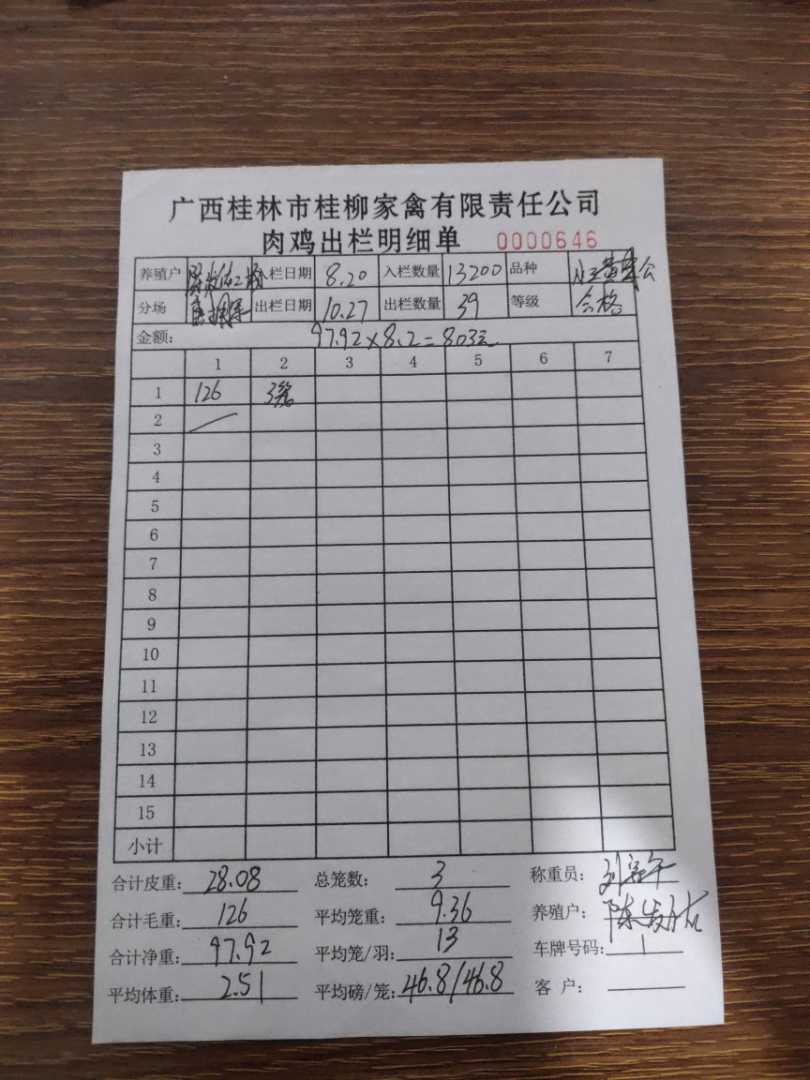 广西桂林市桂柳家禽有限责任公司
肉鸡出栏明细单 0000646
养殖户 入栏日期 8.20 入栏数量 13200 品种
分场 出栏日期 10.27 出栏数量 39 等级 合格
金额: 97.92×8.2=803元
1 2 3 4 5 6 7
1 126 3笼
2
3
4
5
6
7
8
9
10
11
12
13
14
15
小计
合计皮重: 28.08 总笼数: 3 称重员:
合计毛重: 126 平均笼重: 9.36 养殖户:
合计净重: 97.92 平均笼/羽: 13 车牌号码:
平均体重: 2.51 平均磅/笼: 46.8/46.8 客户: